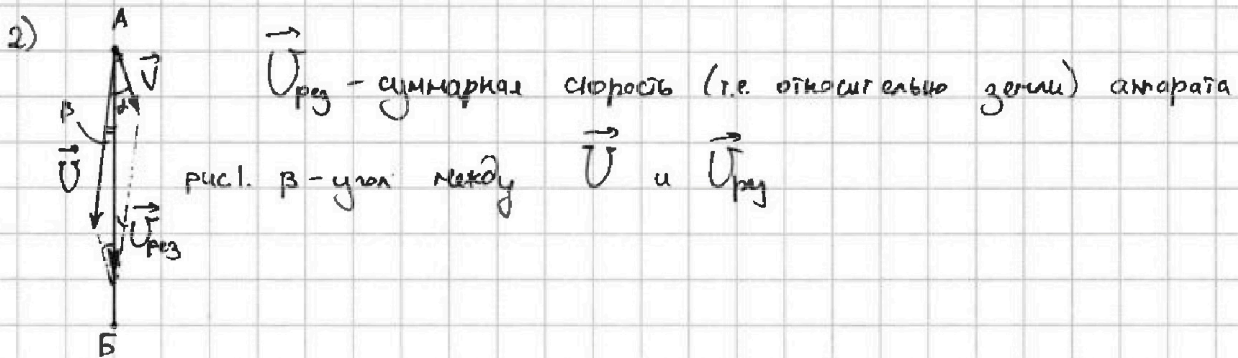 2)
A
V
α
β
U
U рез
Б
U рез - суммарная скорость (т.е. относительно земли) аппарата
рис1. β - угол между U и U рез